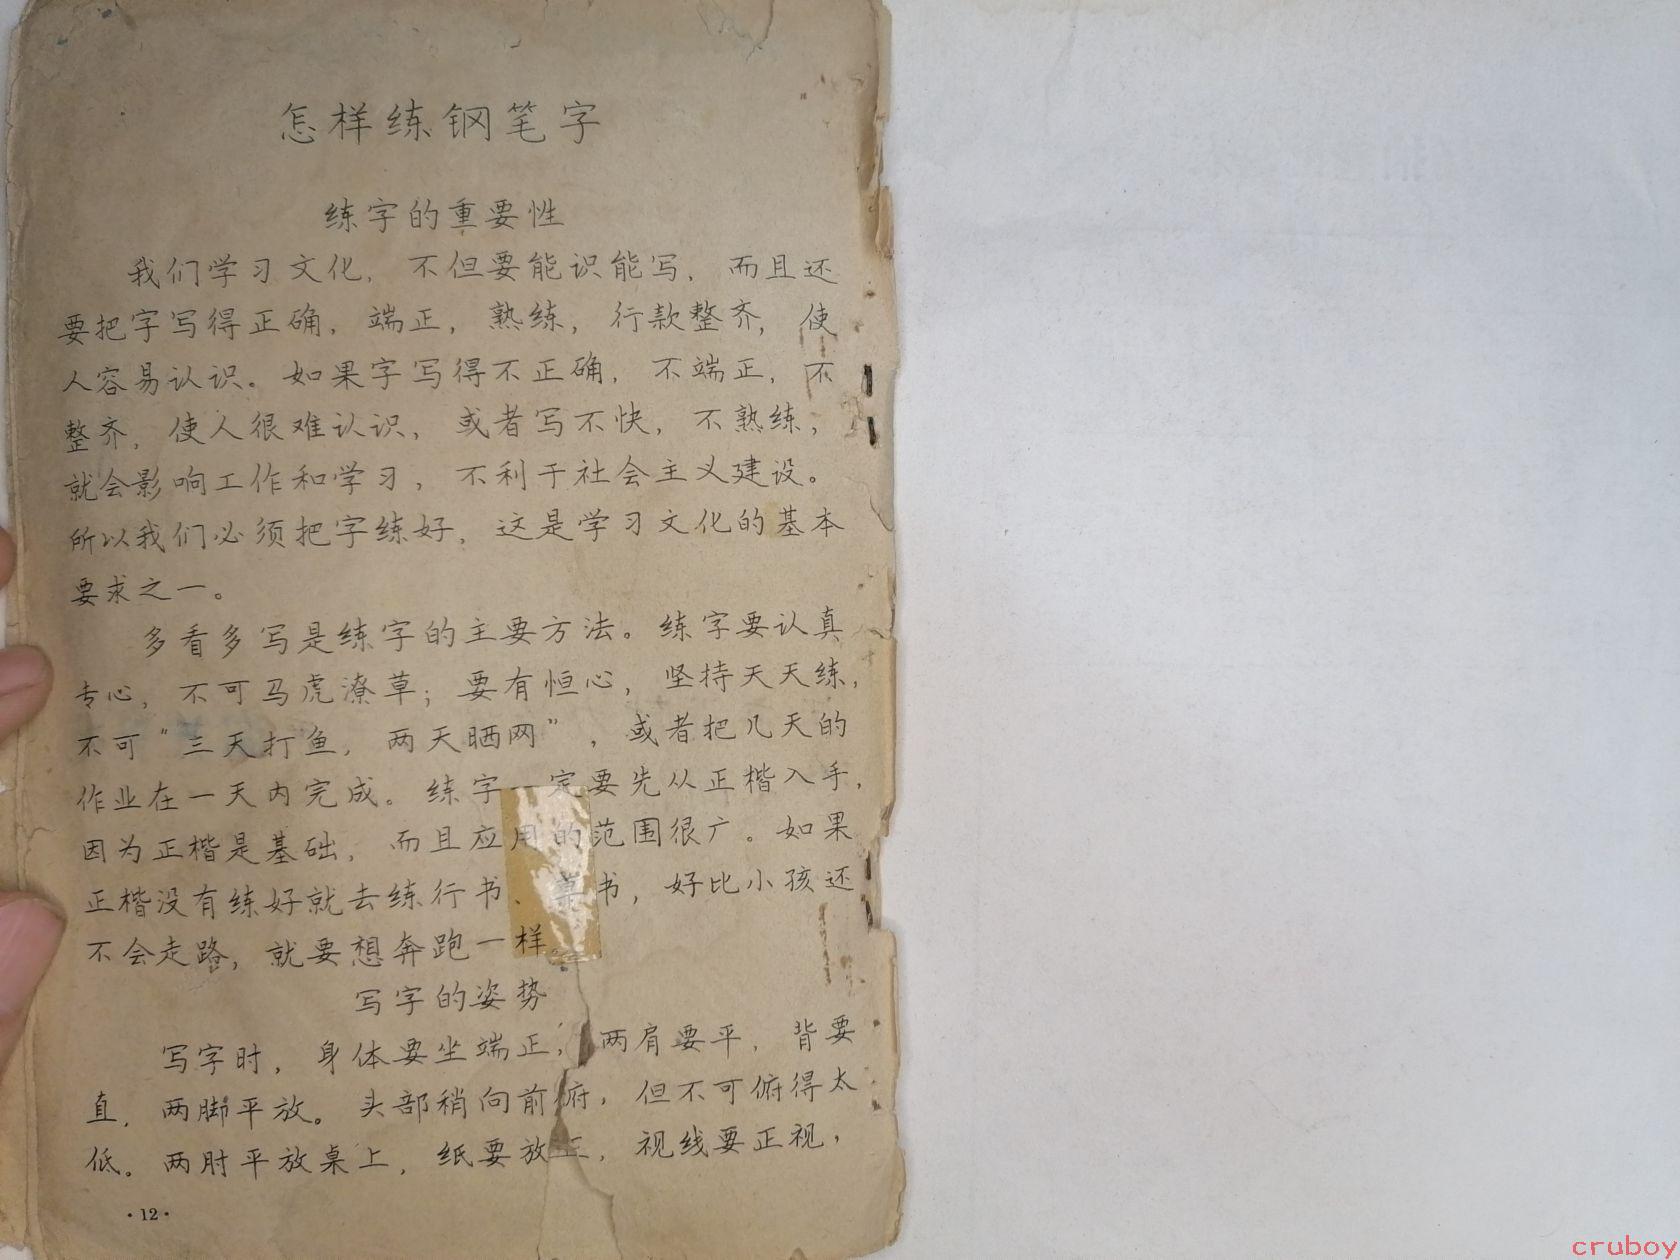 怎样练钢笔字
练字的重要性
我们学习文化，不但要能识能写，而且还
要把字写得正确，端正，熟练，行款整齐，使
人容易认识。如果字写得不正确，不端正，不
整齐，使人很难认识，或者写不快，不熟练，
就会影响工作和学习，不利于社会主义建设。
所以我们必须把字练好，这是学习文化的基本
要求之一。
多看多写是练字的主要方法。练字要认真
专心，不可马虎潦草；要有恒心，坚持天天练，
不可“三天打鱼，两天晒网”，或者把几天的
作业在一天内完成。练字一定要先从正楷入手，
因为正楷是基础，而且应用的范围很广。如果
正楷没有练好就去练行书、草书，好比小孩还
不会走路，就要想奔跑一样。
写字的姿势
写字时，身体要坐端正，两肩要平，背要
直，两脚平放。头部稍向前俯，但不可俯得太
低。两肘平放桌上，纸要放正，视线要正视，
·12·
cruboy